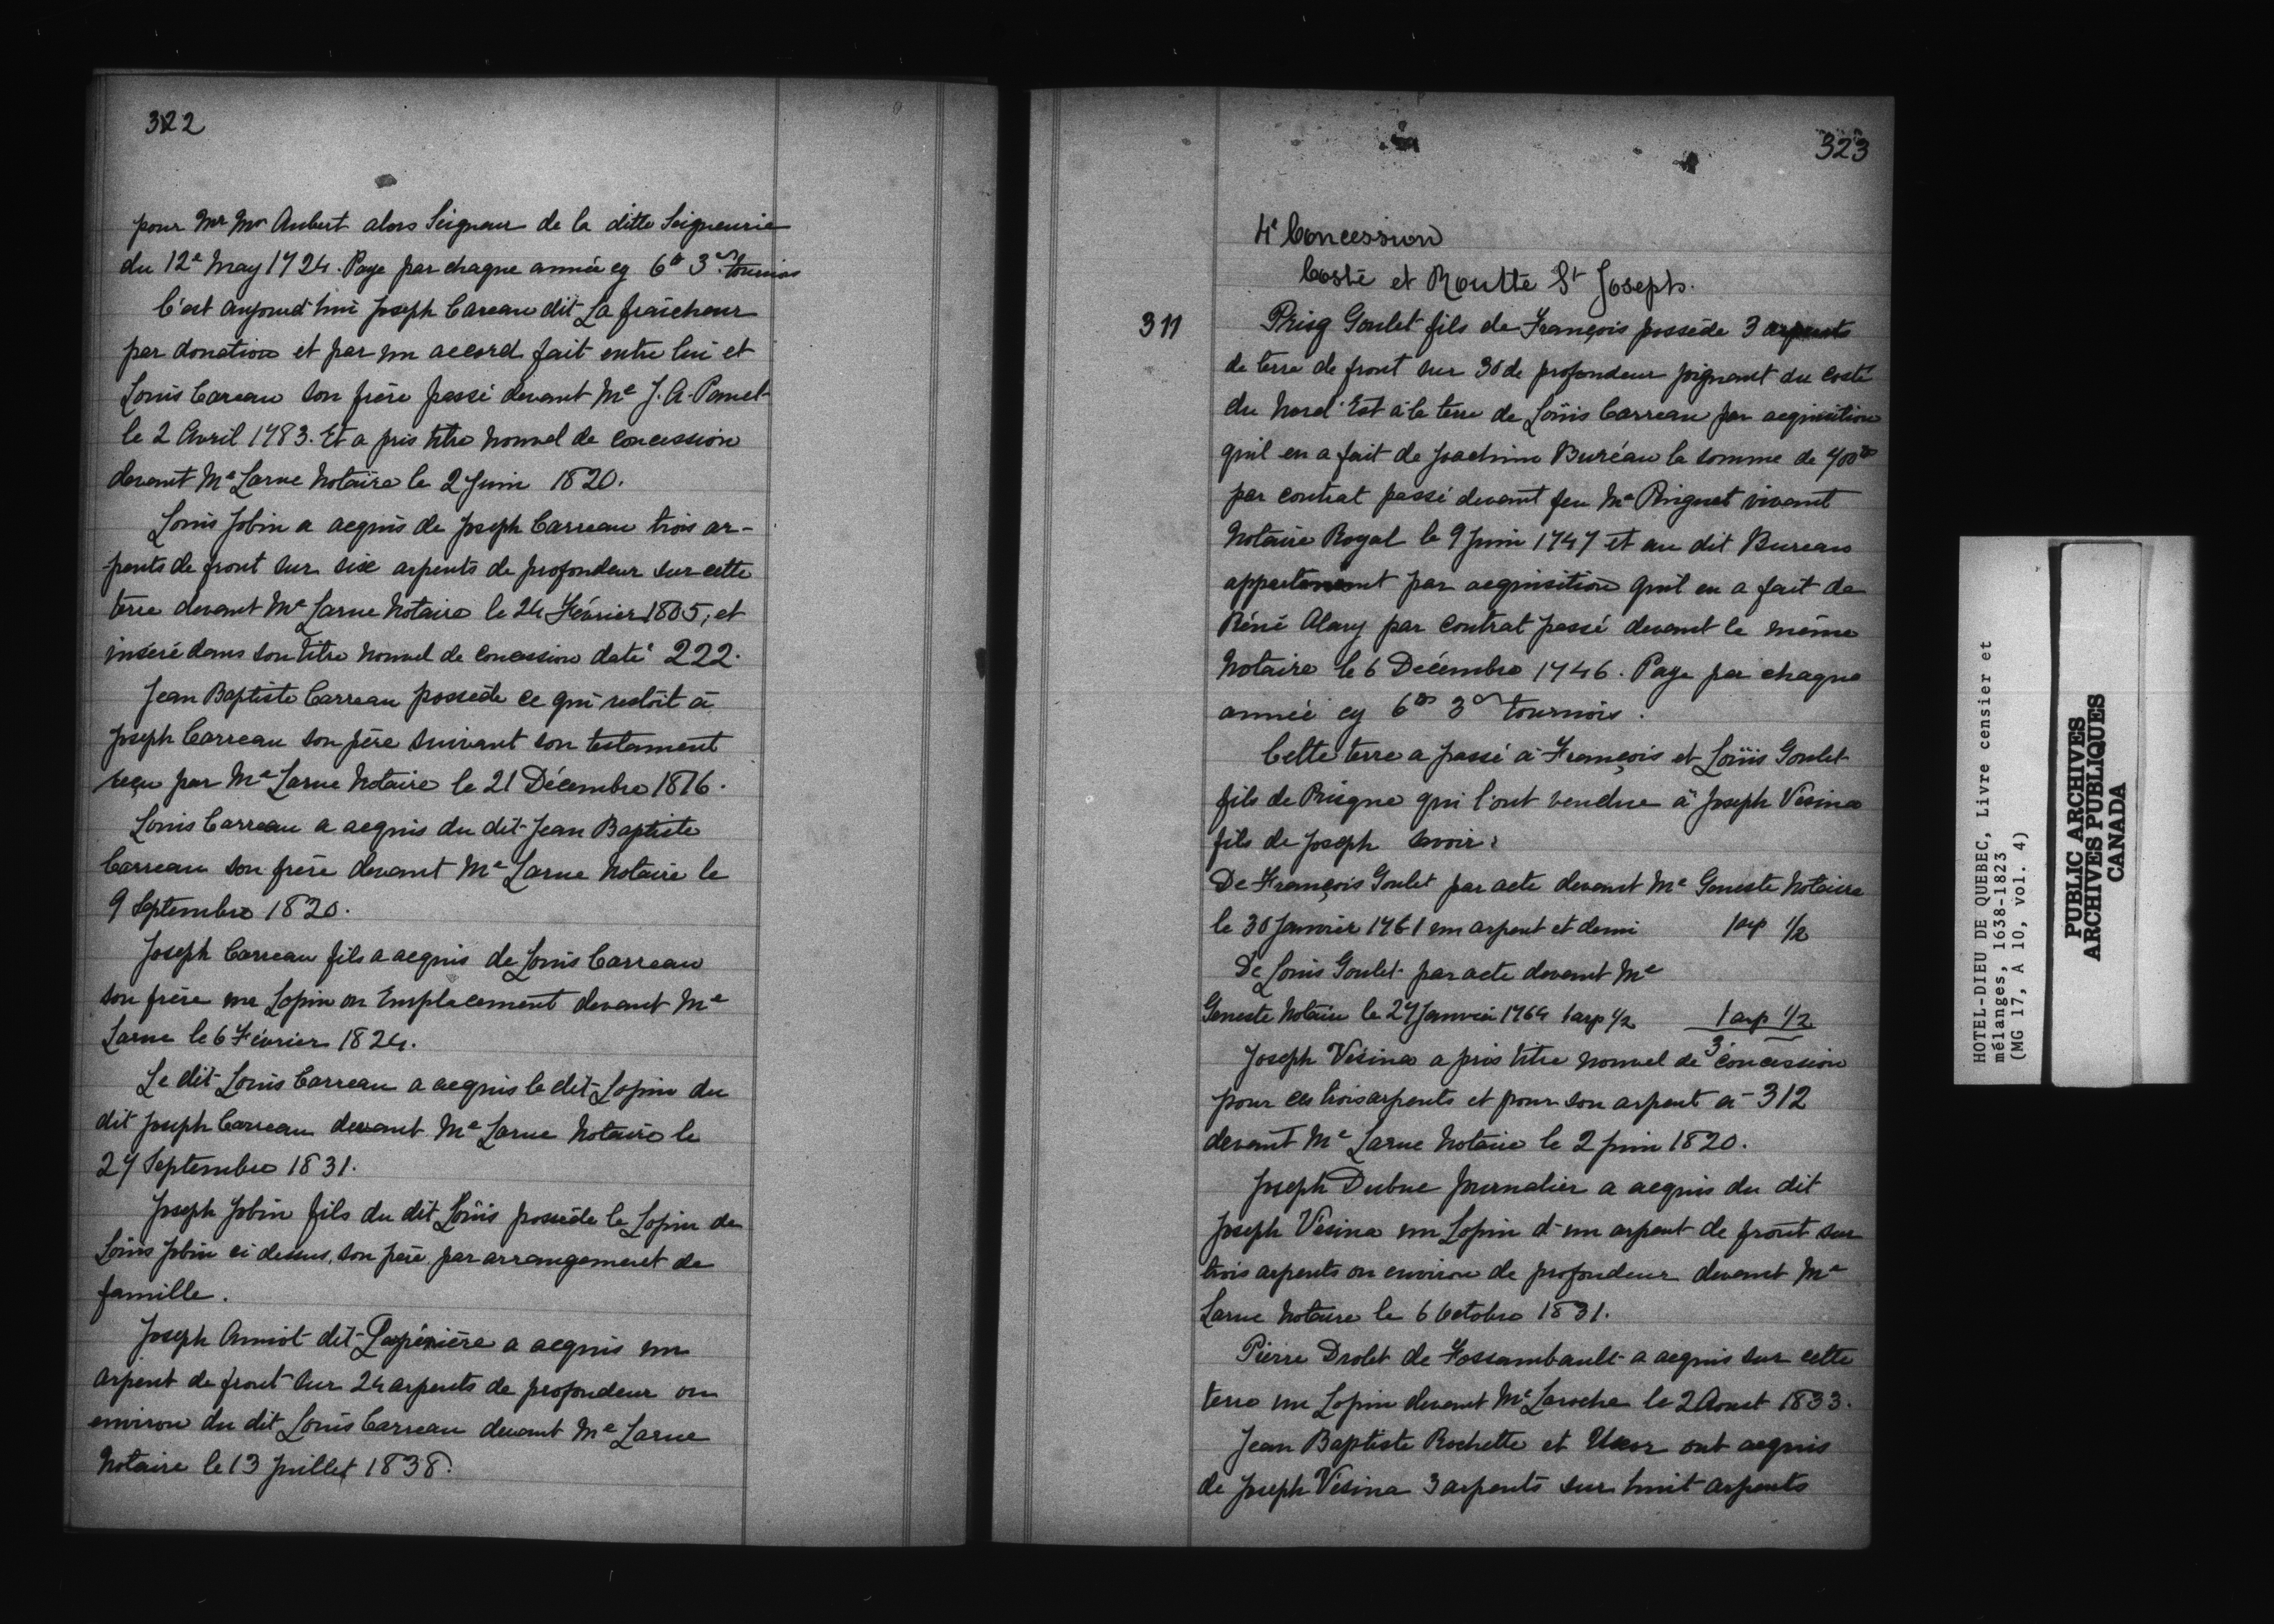 322
pour Mr Mr Aubert alors Seigneur de la ditte Seigneurie
du 12e May 1724. Paye par chaque année cy 6tt 3s tournois
C'est aujourd'hui Joseph Careau dit La fraîcheur
par donation et par un accord fait entre lui et
Louis Careau son frère passé devant Me J. A. Panet
le 2 Avril 1783. Et a pris titre nouvel de concession
devant Me Larue Notaire le 2 Juin 1820.
Louis Jobin a acquis de Joseph Carreau trois ar-
-pents de front sur six arpents de profondeur sur cette
terre devant Me Larue Notaire le 24 Février 1805, et
inséré dans son titre nouvel de concession daté 222.
Jean Baptiste Carreau possède ce qui restoit à
Joseph Carreau son père suivant son testament
reçu par Me Larue Notaire le 21 Décembre 1816.
Louis Carreau a acquis du dit Jean Baptiste
Carreau son frère devant Me Larue Notaire le
9 Septembre 1820.
Joseph Carreau fils a acquis de Louis Carreau
son frère un Lopin ou Emplacement devant Me
Larue le 6 Février 1824.
Le dit Louis Carreau a acquis le dit Lopin du
dit Joseph Carreau devant Me Larue Notaire le
27 Septembre 1831.
Joseph Jobin fils du dit Loüis possède le Lopin de
Loüis Jobin ci dessus, son père par arrangement de
famille.
Joseph Amiot dit Lespérière a acquis un
arpent de front sur 24 arpents de profondeur ou
environ du dit Louis Carreau devant Me Larue
Notaire le 13 Juillet 1838.
323
4e Concession
Costé et Routte St Joseph.
311
Prisq Goulet fils de François possède 3 arpents
de terre de front sur 30 de profondeur joignant du costé
du Nord-Est à la terre de Loüis Carreau par acquisition
qu'il en a fait de Joachim Buréau la somme de 700tt
par contrat passé devant feu Me Pinguet vivant
Notaire Royal le 9 Juin 1747 et au dit Bureau
appartenant par acquisition qu'il en a fait de
Réné Alary par Contrat passé devant le même
Notaire le 6 Décembre 1746. Paye par chaque
année cy 6tt 3s tournois.
Cette terre a passé à François et Loüis Goulet
fils de Prisque qui l'ont vendue à Joseph Vésina
fils de Joseph savoir:
De François Goulet par acte devant Me Geneste Notaire
le 30 Janvier 1761 un arpent et demi 1 arp 1/2
De Louis Goulet par acte devant Me
Geneste Notaire le 27 Janvier 1764 1 arp 1/2 1 arp 1/2
3
Joseph Vésina a pris titre nouvel de concession
pour ces trois arpents et pour son arpent à 312
devant Me Larue Notaire le 2 Juin 1820.
Joseph Dubuc Journalier a acquis du dit
Joseph Vésina un Lopin d'un arpent de front sur
trois arpents ou environ de profondeur devant Me
Larue Notaire le 6 Octobre 1831.
Pierre Drolet de Fossambault a acquis sur cette
terre un Lopin devant Me Laroche le 2 Aoust 1833.
Jean Baptiste Rochette et Uxor ont acquis
de Joseph Vésina 3 arpents sur huit arpents
HOTEL-DIEU DE QUEBEC, Livre censier et
mélanges, 1638-1823
(MG 17, A 10, vol. 4)
PUBLIC ARCHIVES
ARCHIVES PUBLIQUES
CANADA